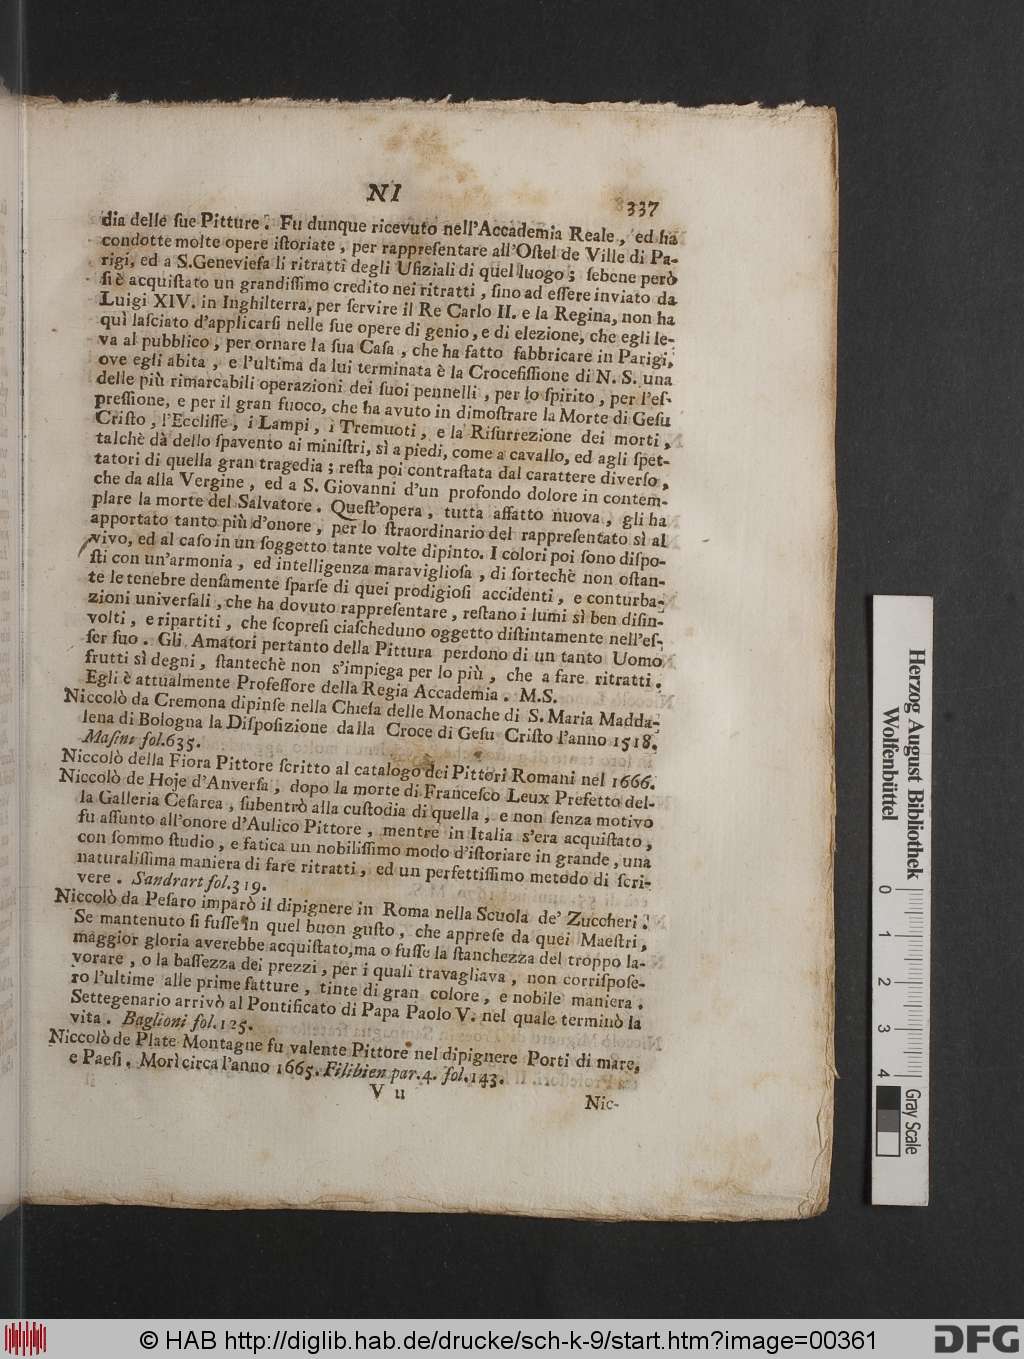 NI
337
dia delle ſue Pitture. Fu dunque ricevuto nell'Accademia Reale, ed ha
condotte molte opere iſtoriate, per rappreſentare all'Oſtel de Ville di Pa-
rigi, ed a S. Genevieſa li ritratti degli Ufiziali di quel luogo; ſebene però
ſi è acquiſtato un grandiſſimo credito nei ritratti, ſino ad eſſere inviato da
Luigi XIV. in Inghilterra, per ſervire il Re Carlo II. e la Regina, non ha
quì laſciato d'applicarſi nelle ſue opere di genio, e di elezione, che egli le-
va al pubblico, per ornare la ſua Caſa, che ha fatto fabbricare in Parigi,
ove egli abita, e l'ultima da lui terminata è la Crocefiſſione di N. S. una
delle più rimarcabili operazioni dei ſuoi pennelli, per lo ſpirito, per l'eſ-
preſſione, e per il gran fuoco, che ha avuto in dimoſtrare la Morte di Geſu
Criſto, l'Eccliſſe, i Lampi, i Tremuoti, e la Riſurrezione dei morti,
talchè dà dello ſpavento ai miniſtri, sì a piedi, come a cavallo, ed agli ſpet-
tatori di quella gran tragedia; reſta poi contraſtata dal carattere diverſo,
che da alla Vergine, ed a S. Giovanni d'un profondo dolore in contem-
plare la morte del Salvatore. Queſt'opera, tutta affatto nuova, gli ha
apportato tanto più d'onore, per lo ſtraordinario del rappreſentato sì al
vivo, ed al caſo in un ſoggetto tante volte dipinto. I colori poi ſono diſpo-
ſti con un'armonia, ed intelligenza maraviglioſa, di ſortechè non oſtan-
te le tenebre denſamente ſparſe di quei prodigioſi accidenti, e conturba-
zioni univerſali, che ha dovuto rappreſentare, reſtano i lumi sì ben diſin-
volti, e ripartiti, che ſcopreſi ciaſcheduno oggetto diſtintamente nell'eſ-
ſer ſuo. Gli Amatori pertanto della Pittura perdono di un tanto Uomo
frutti sì degni, ſtantechè non s'impiega per lo più, che a fare ritratti.
Egli è attualmente Profeſſore della Regia Accademia. M.S.
Niccolò da Cremona dipinſe nella Chieſa delle Monache di S. Maria Madda-
lena di Bologna la Diſpoſizione dalla Croce di Geſu Criſto l'anno 1518.
Maſini fol.635.
Niccolò della Fiora Pittore ſcritto al catalogo dei Pittori Romani nel 1666.
Niccolò de Hoje d'Anverſa, dopo la morte di Franceſco Leux Prefetto del-
la Galleria Ceſarea, ſubentrò alla cuſtodia di quella, e non ſenza motivo
fu aſſunto all'onore d'Aulico Pittore, mentre in Italia s'era acquiſtato,
con ſommo ſtudio, e fatica un nobiliſſimo modo d'iſtoriare in grande, una
naturaliſſima maniera di fare ritratti, ed un perfettiſſimo metodo di ſcri-
vere. Sandrart fol.319.
Niccolò da Peſaro imparò il dipignere in Roma nella Scuola de' Zuccheri.
Se mantenuto ſi fuſſe in quel buon guſto, che appreſe da quei Maeſtri,
maggior gloria averebbe acquiſtato, ma o fuſſe la ſtanchezza del troppo la-
vorare, o la baſſezza dei prezzi, per i quali travagliava, non corriſpoſe-
ro l'ultime alle prime fatture, tinte di gran colore, e nobile maniera.
Settegenario arrivò al Pontificato di Papa Paolo V. nel quale terminò la
vita. Baglioni fol.125.
Niccolò de Plate Montagne fu valente Pittore nel dipignere Porti di mare,
e Paeſi. Morì circa l'anno 1665. Filibien par.4. fol.143.
V u
Nic-
Herzog August Bibliothek
Wolfenbüttel
0
1
2
3
4
Gray Scale
© HAB http://diglib.hab.de/drucke/sch-k-9/start.htm?image=00361
DFG